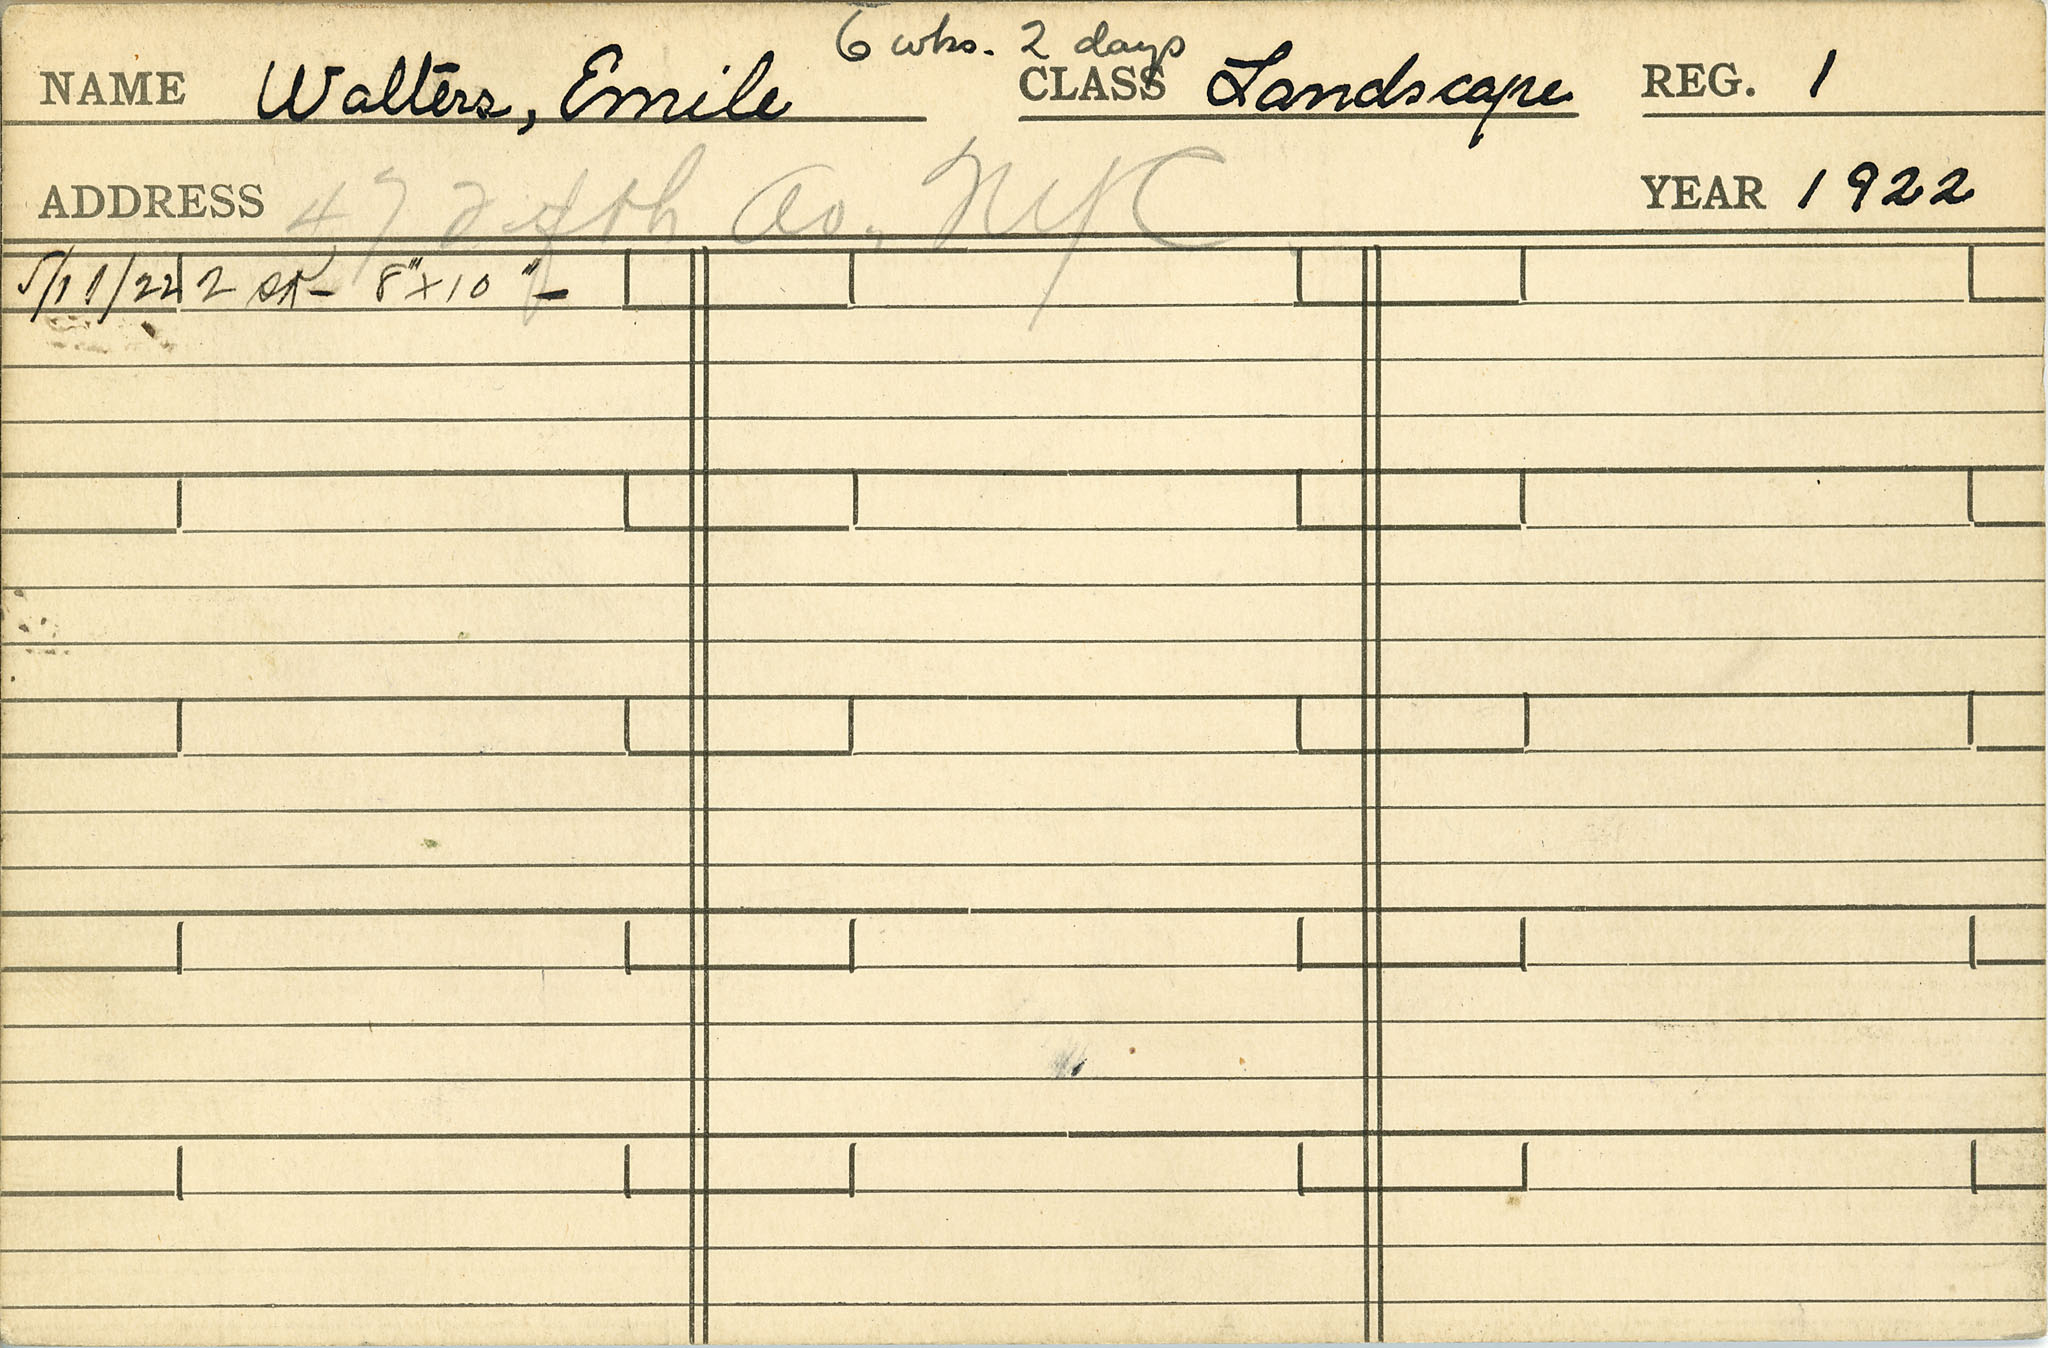 6 wks. 2 days
NAME Walters, Emile CLASS Landscape REG. 1
ADDRESS 47 Fifth Av., NYC YEAR 1922
5/11/22 2 sk- 8"x10"-